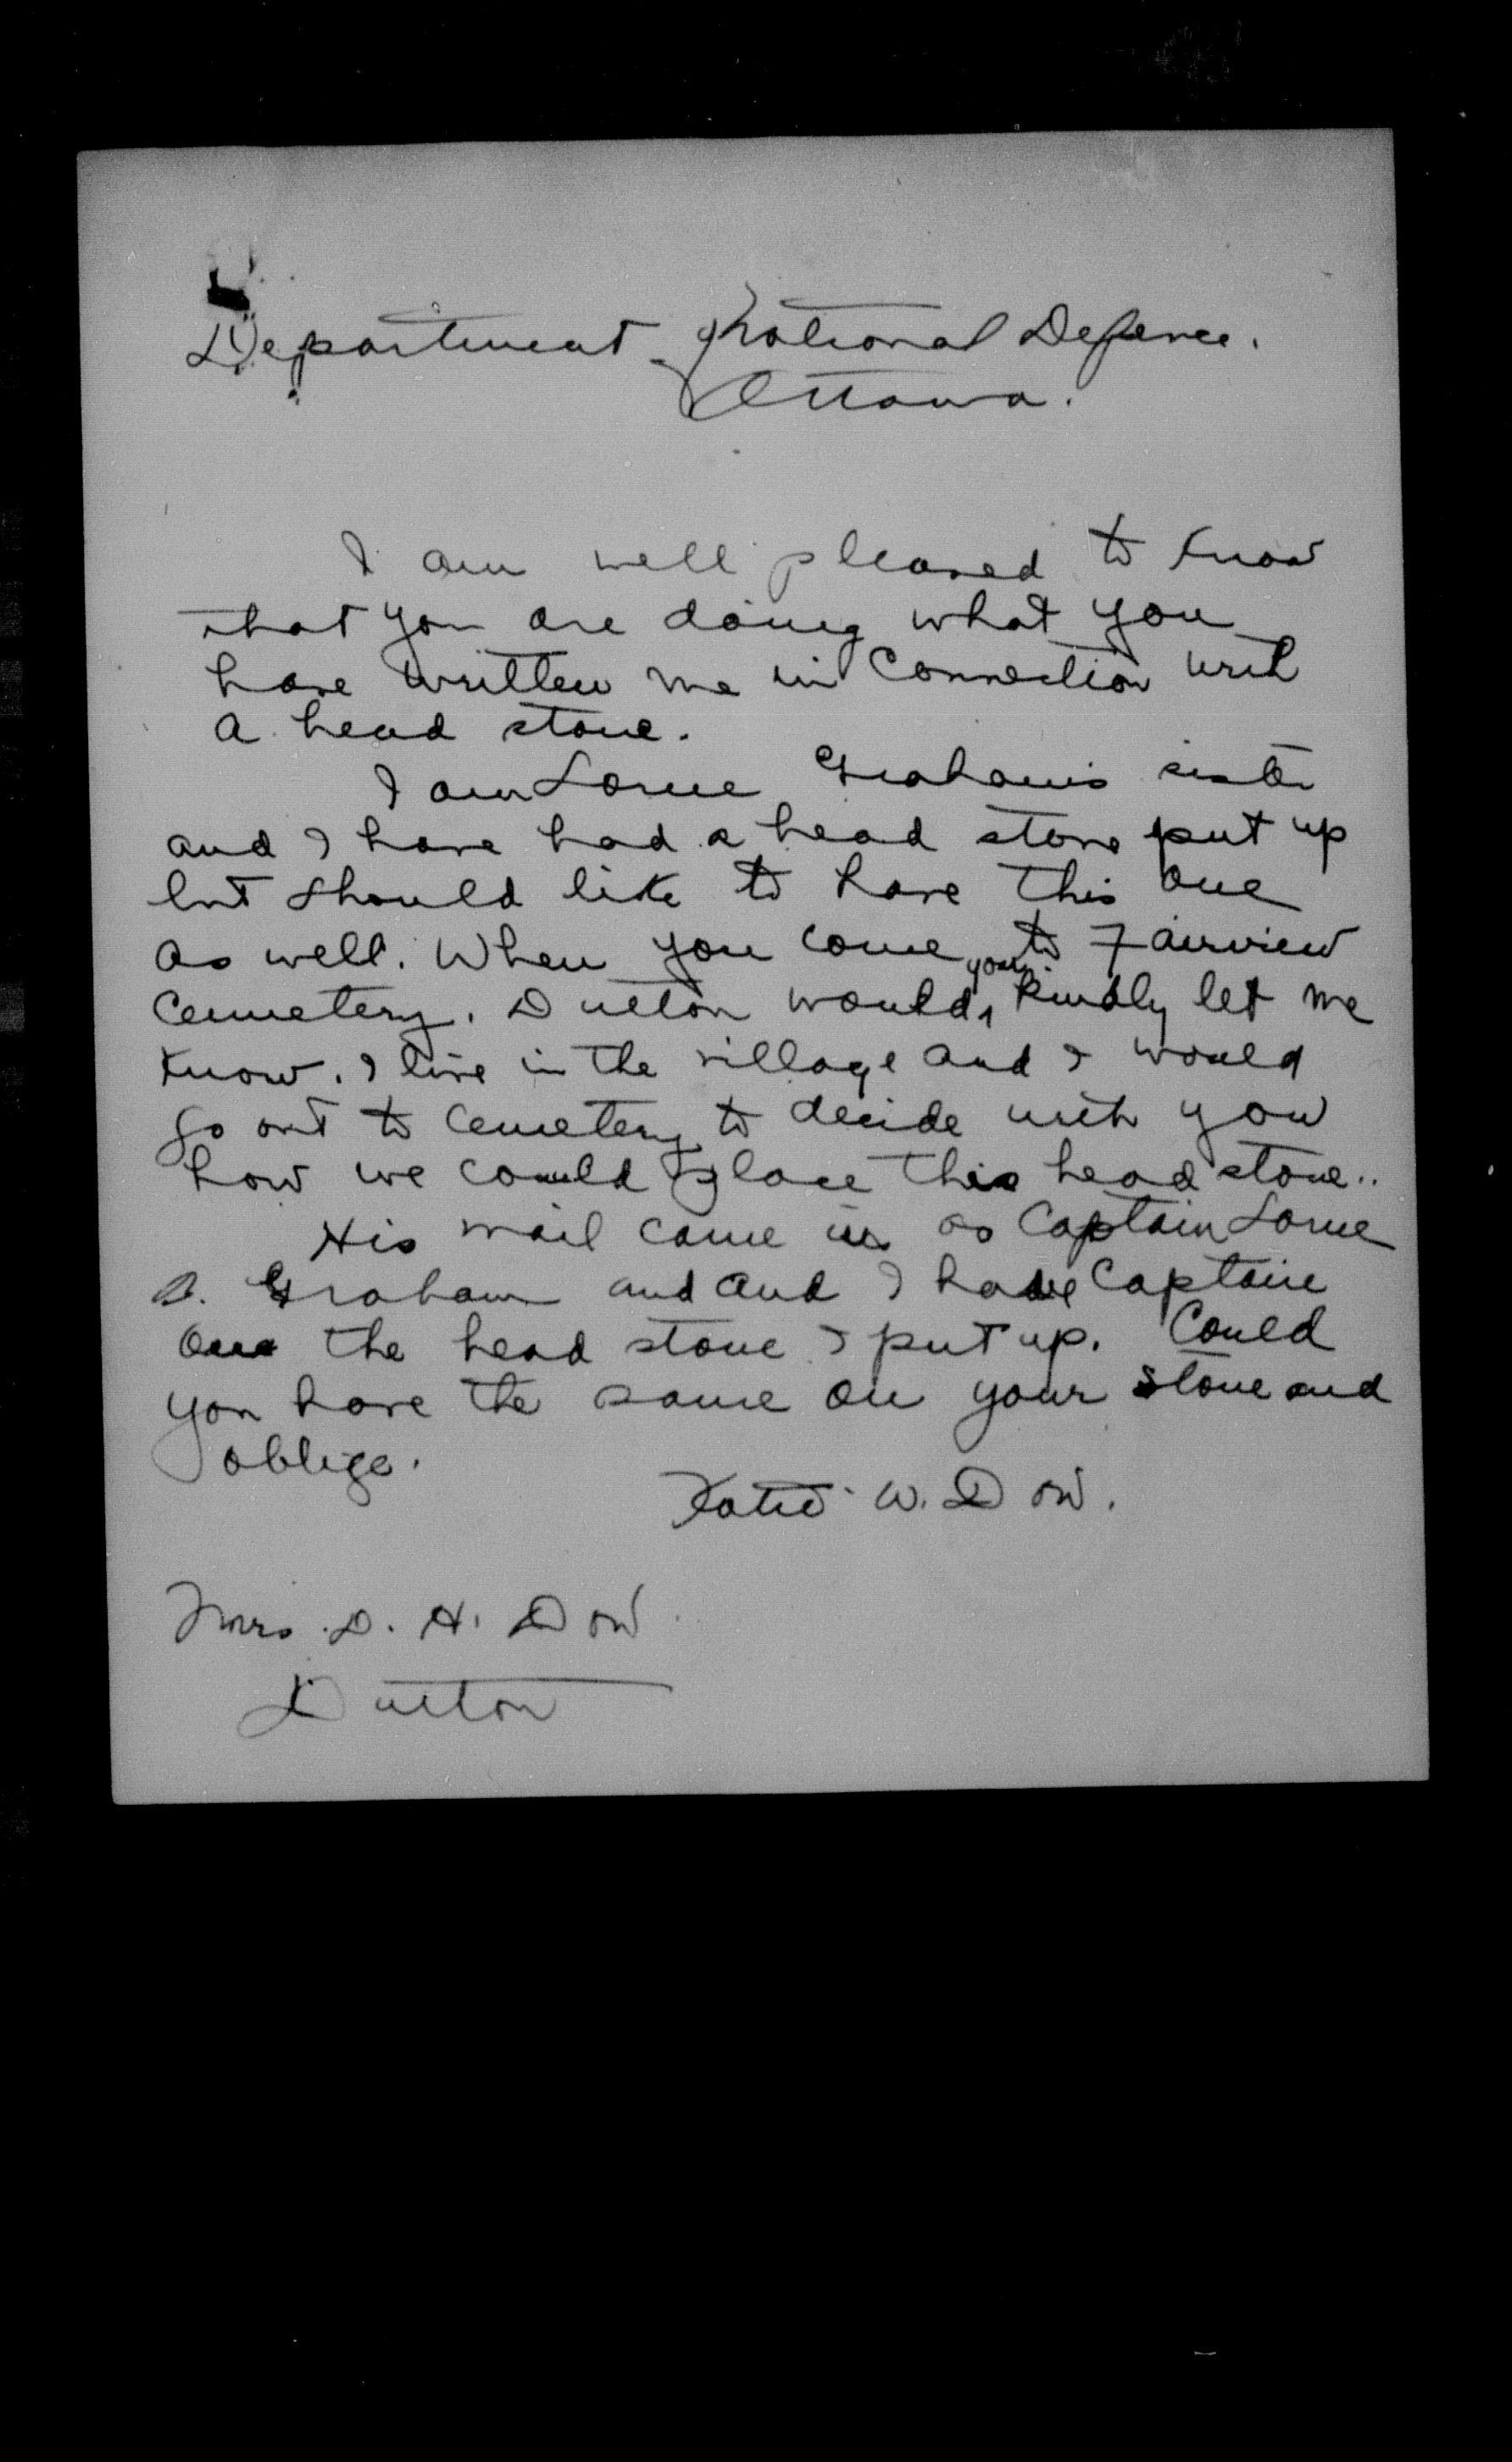 Department National Defence.
Ottawa.
I am well pleased to know
that you are doing what you
have written me in connection with
a head stone.
I am Lorne Graham's sister
and I have had a head stone put up
but should like to have this one
as well. When you come to Fairview
you
Cemetery. Dutton would, kindly let me
know. I live in the village and I would
go out to cemetery to decide with you
how we could place this head stone..
His mail came in as Captain Lorne
D. Graham and and I have Captain
on the head stone I put up. Could
you have the same on your stone and
oblige.
Katie W. Dow.
Mrs. D. H. Dow
Dutton